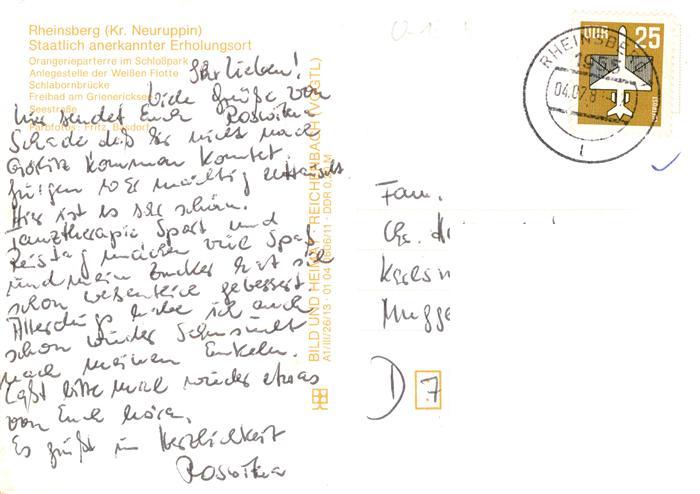 Rheinsberg (Kr. Neuruppin)
Staatlich anerkannter Erholungsort
Orangerieparterre im Schloßpark
Anlegestelle der Weißen Flotte
Schlabornbrücke
Freibad am Grienericksee
Seestraße
Farbfotos: Fritz, Basdorf
Ihr lieben!
Viele Grüße von
hier sendet Euch Roswitha
Schade daß Ihr nicht nach
Görlitz kommen konntet.
Jürgen war mächtig enttäuscht.
Hier ist es sehr schön.
Tanztherapie Sport und
machen viel Spaß
und mein Zucker hat sich
schon wesentlich gebessert.
Allerdings habe ich auch
schon wieder Sehnsucht
nach meinen Enkeln.
Laßt bitte mal wieder etwas
von Euch hören.
Es grüßt in Herzlichkeit
Roswitha
BILD UND HEIMAT REICHENBACH (VOGTL)
A1/III/26/13 01 04 0606/11 DDR M
DDR 25
LUFTPOST
RHEINSBERG
1955
04.07.8
Fam.
Chr.
Karls
Mugge
D 7